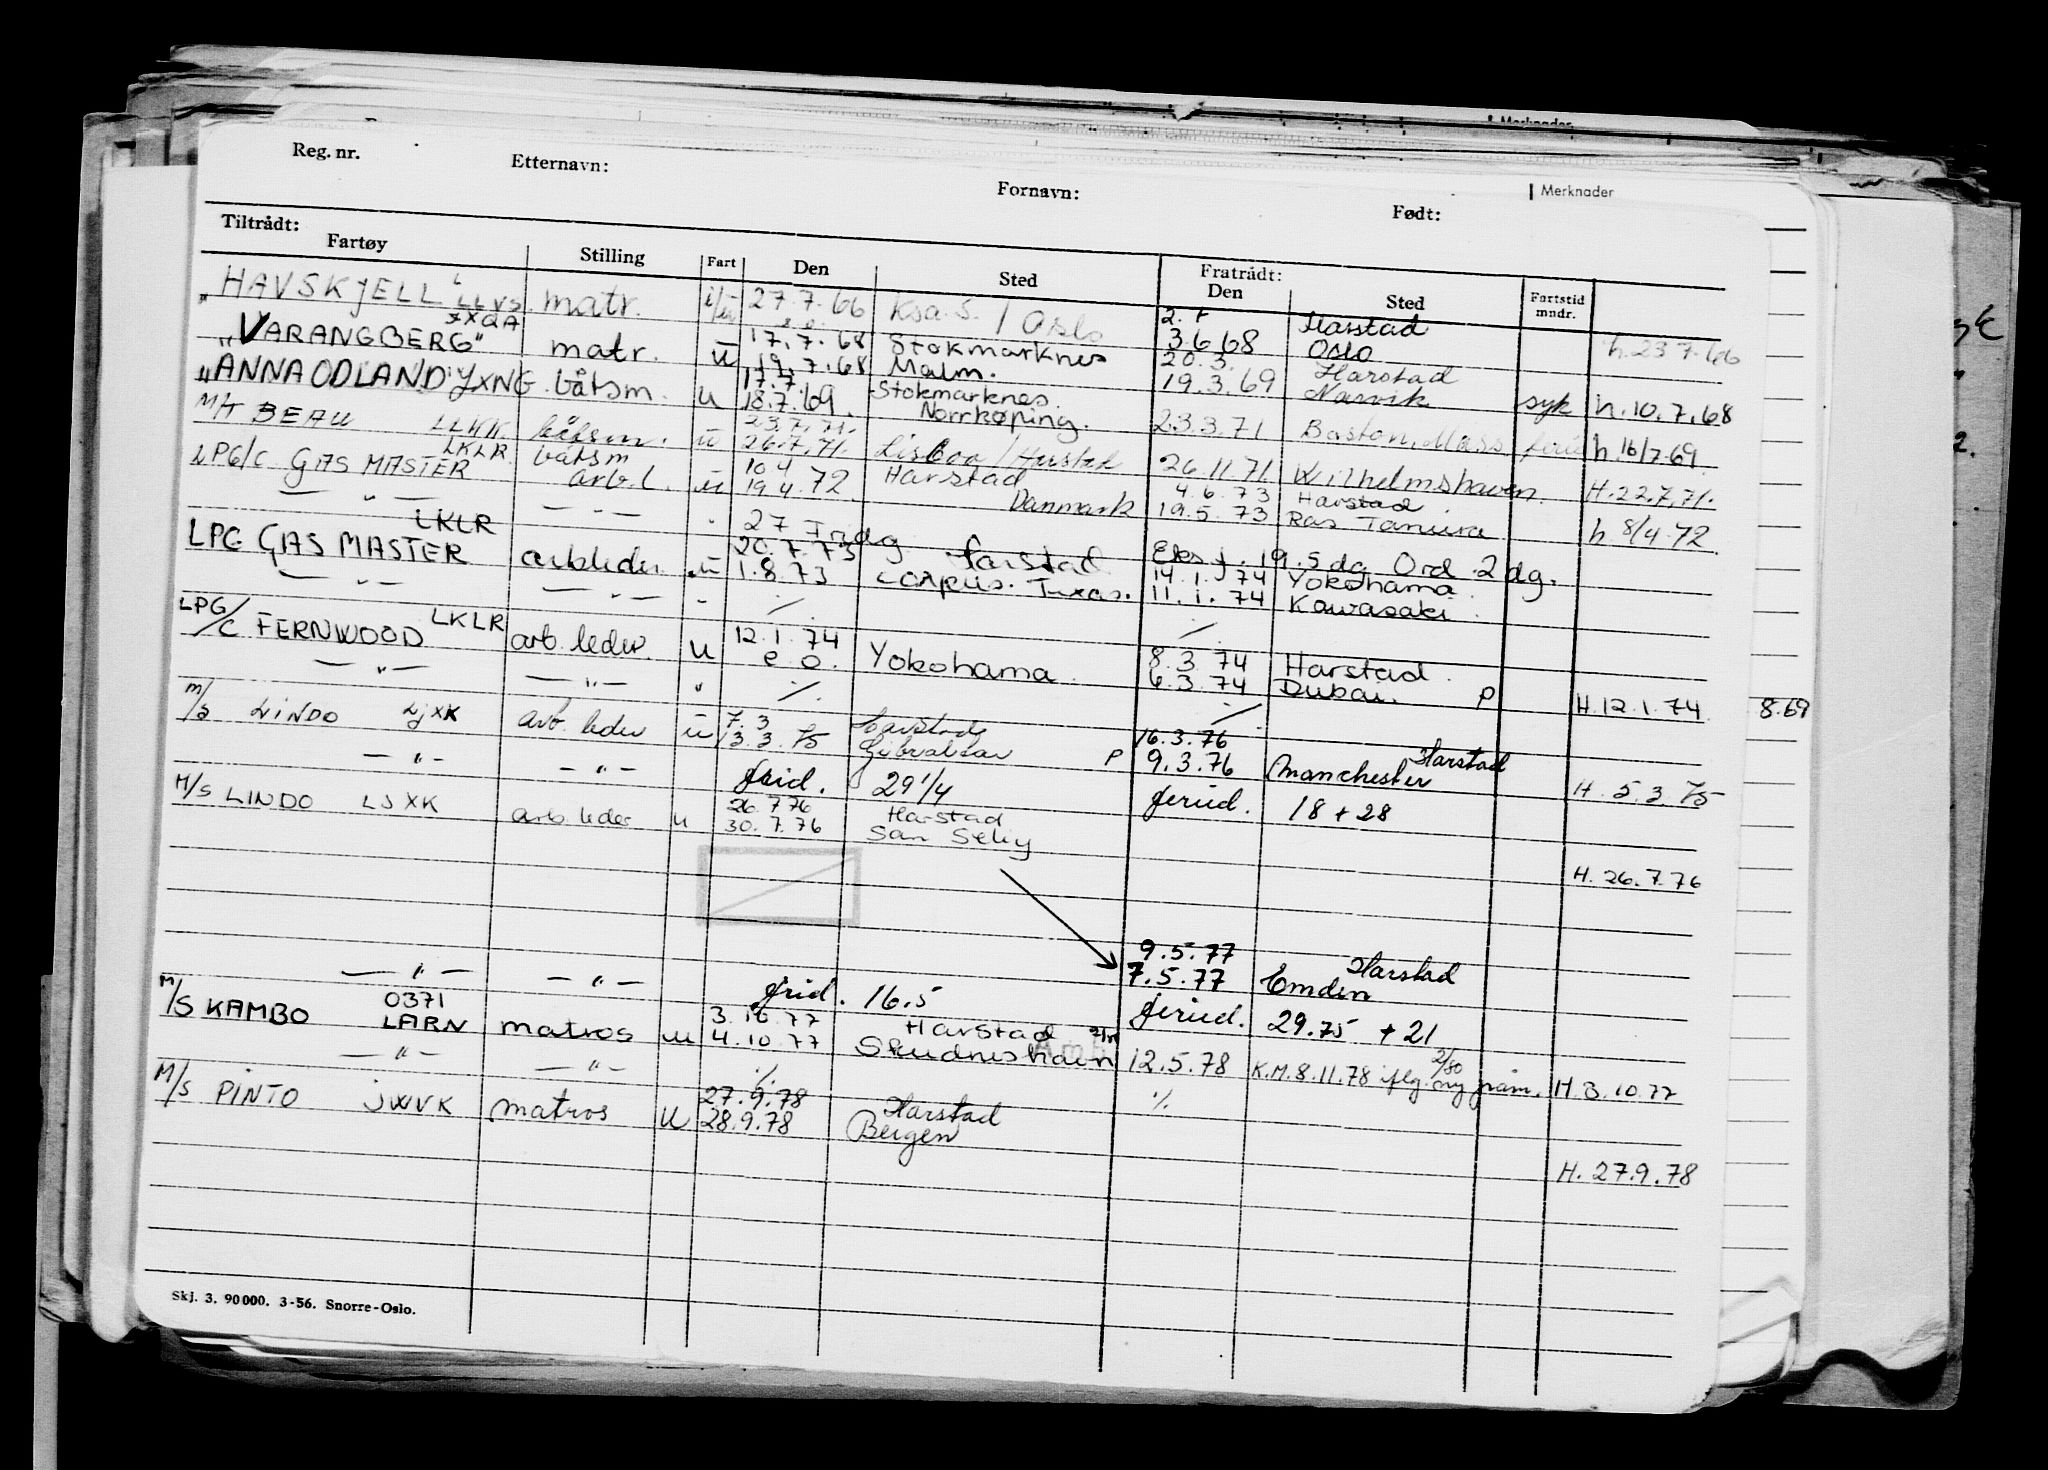 Merknader
Reg. nr. Etternavn: Fornavn: Født: Merknader
Tiltrådt: Fratrådt:
Fartøy Stilling Fart Den Sted Den Sted Fartstid mndr.
HAVSKJELL LLVS matr. 27.7.66 / Oslo 3.6.68 Harstad h. 23.7.66
"VARANGBERG" matr. ū 17.7.68 Stokmarknes 20.3. Oslo
19.7.68 Malm. 19.3.69 Harstad
"ANNA ODLAND" JXNG båtsm. u 17.7. Stokmarknes Narvik syk h. 10.7.68
18.7.69. Norrköping.
M/T BEAU LLKK båtsm. ū 23.7.71. 23.3.71 Boston, Mass h. 16/7.69
26.7.71. Lisboa / Harstad
LPG/C GAS MASTER LKLR båtsm ū 10.4 Harstad 26.11.71. Wilhelmshaven. H. 22.7.71.
arb.l. 19.4.72. Danmark 4.6.73 Harstad
— " — — " — 19.5.73 Ras Tanura h 8/4.72.
27 Eks f. 19.5 dg Ord. 2 dg.
LPG GAS MASTER LKLR arbleder ū 20.7.73 Harstad 14.1.74 Yokohama
1.8.73 Corpus. Texas. 11.1.74 Kawasaki.
— " — — " —
LPG/C FERNWOOD LKLR arb. leder. u 12.1.74 Yokohama. 8.3.74 Harstad.
e. o. 6.3.74 Dubai. P H. 12.1.74. 8.69
— " — — " — "
M/S LINDO LJXK arb. leder ū 7.3 Harstad 16.3.76 Harstad
13.3.75 Gibraltar P 9.3.76 Manchester H. 5.3.75
— " — — " — frid. 29 1/4 feried. 18 + 28
M/S LINDO LJXK arb. leder u 26.7.76 Harstad
30.7.76 San H. 26.7.76
9.5.77 Harstad
7.5.77 Emden
— " — — " — frid. 16.5 feried. 29.75 + 21
M/S KAMBO 0371 LARN matros u 3.10.77 Harstad
4.10.77 Skudneshavn 12.5.78 K.M. 8.11.78 iflg. ny H. 3.10.77
— " — — " — ./. ./.
M/S PINTO JWVK matros u 27.9.78 Harstad
28.9.78 Bergen
H. 27.9.78
Skj. 3. 90000. 3-56. Snorre-Oslo.